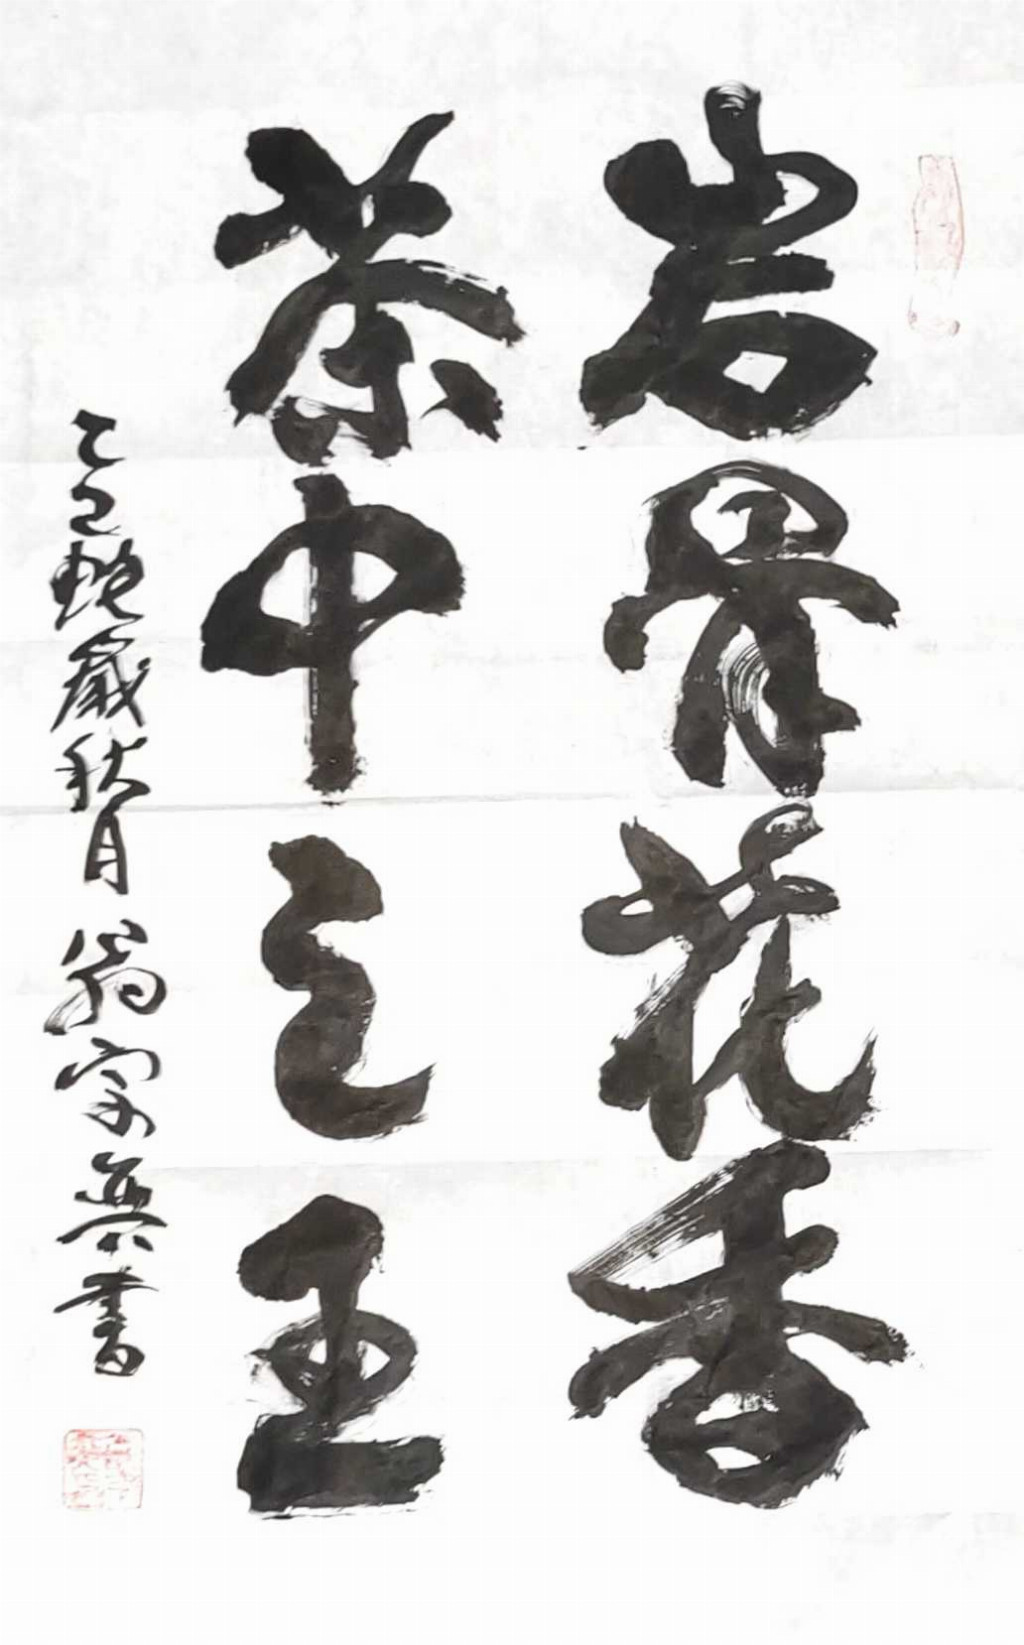 岩骨花香
茶中之王
乙巳蛇歲秋月 翁宗無書